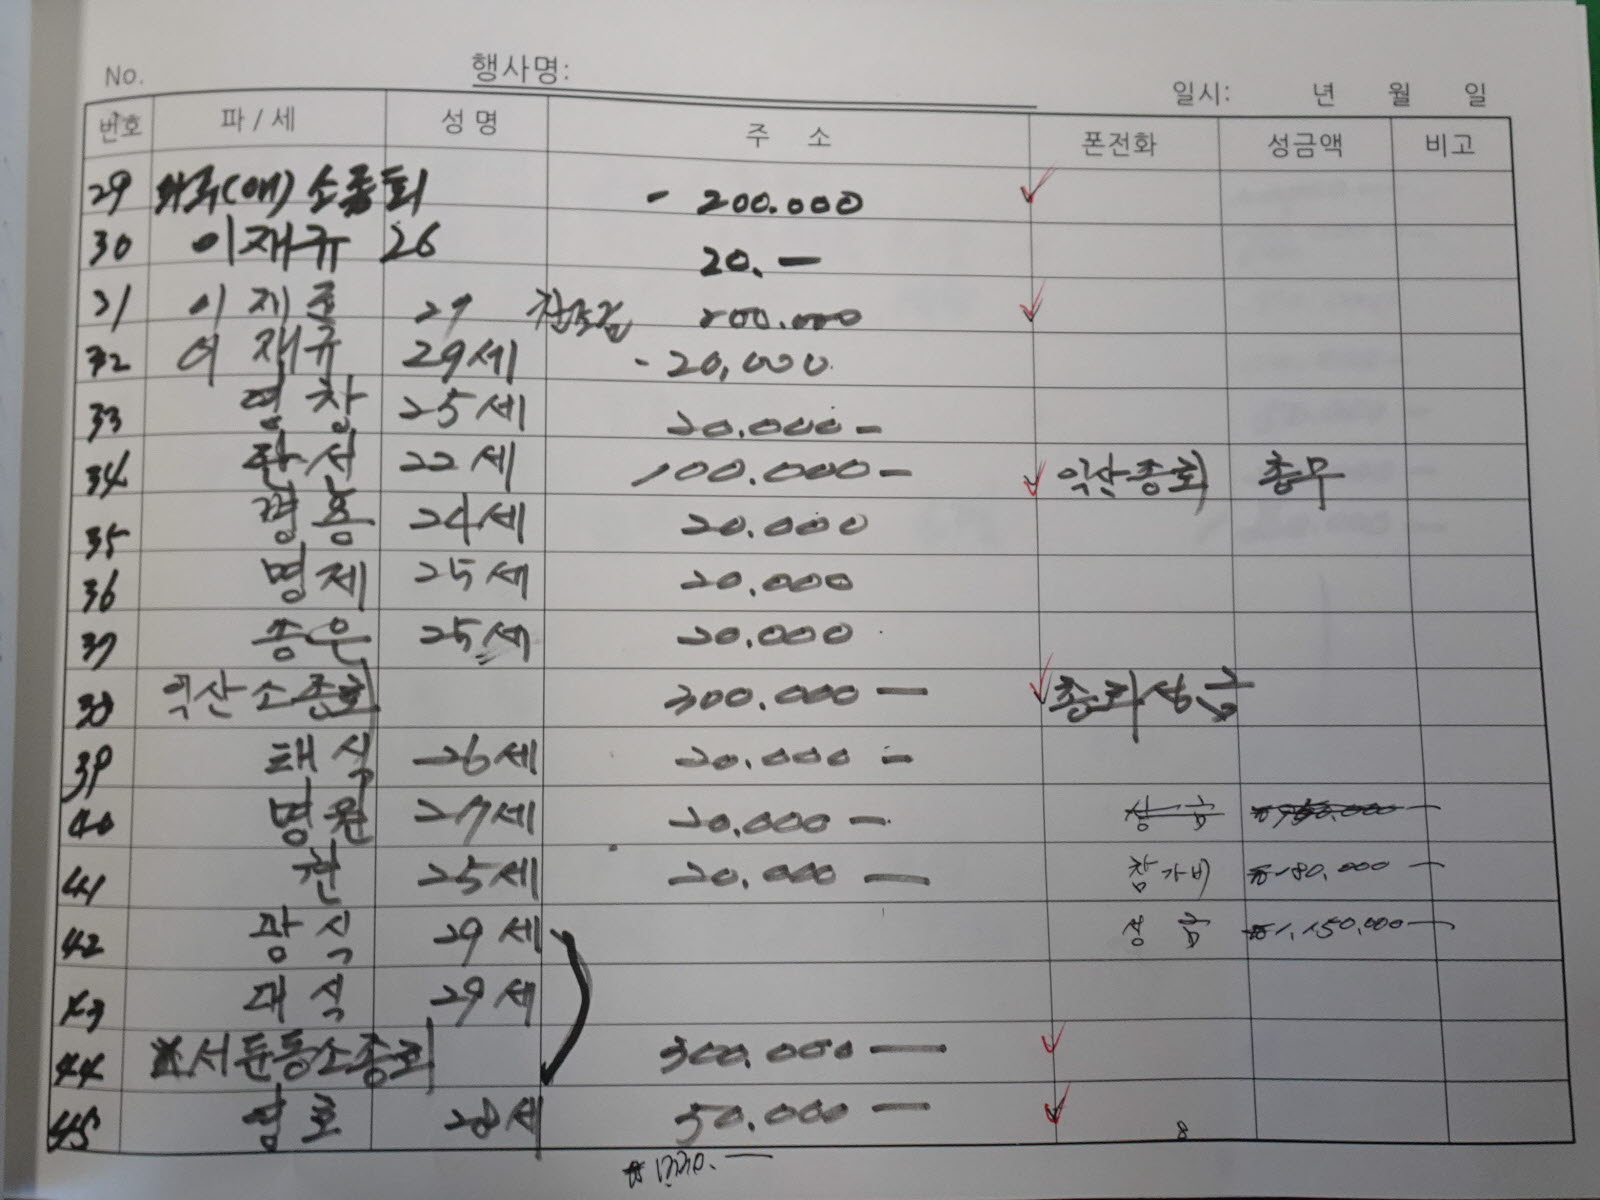 No. 행사명: 일시: 년 월 일
번호 파/세 성명 주 소 폰전화 성금액 비고
29 파주(애) 소종회 - 200.000
30 이재규 26 20.-
31 이제준 29 찬조금 200.000
32 이재규 29세 -20,000
33 영창 25세 20.000-
34 관서 22세 100.000- 익산종회 총무
35 경용 24세 20.000
36 명제 25세 20.000
37 송은 25세 20.000
38 익산소종회 300.000- 종회성금
39 태식 26세 20.000-
40 명원 27세 20.000- 성금
41 권 25세 20.000- 참가비 ₩180,000-
42 광식 29세 성금 ₩1,150,000-
43 대식 29세
44 서둔동소종회 300.000-
45 영호 28세 50.000-
8